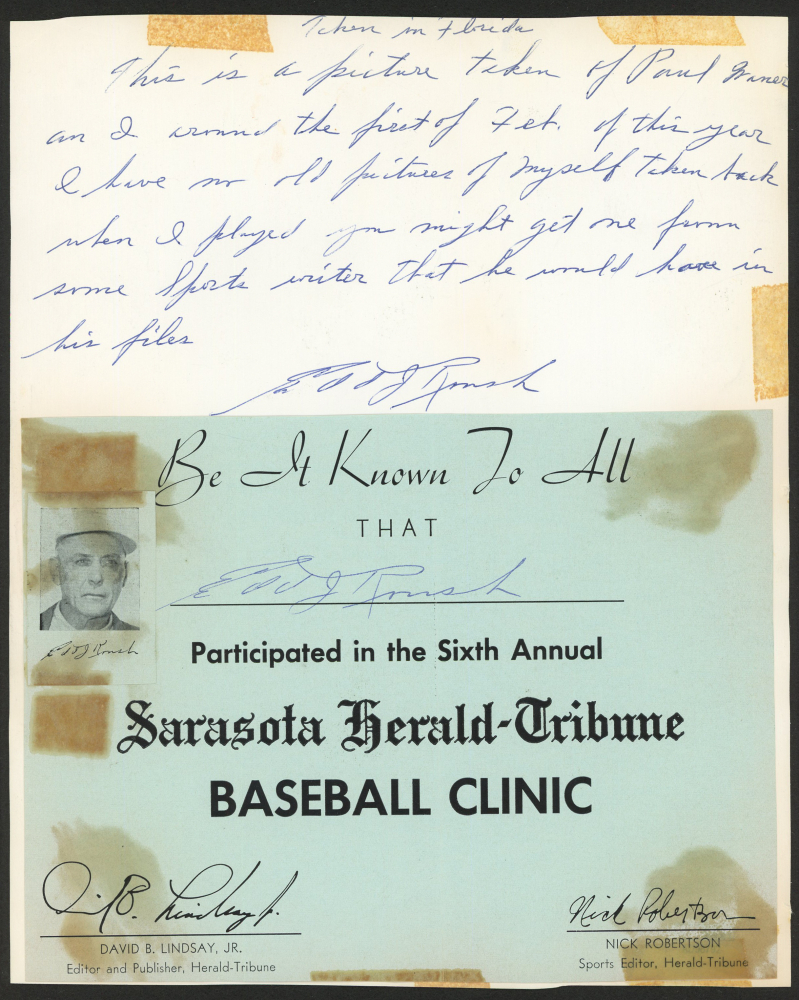 Taken in Florida
This is a picture taken of Paul Waner
an I around the first of Feb. of this year
I have no old pictures of myself taken back
when I played you might get one from
some Sports writer that he would have in
his files
Edd J Roush
Be It Known To All
THAT
Edd J Roush
Edd J Roush
Participated in the Sixth Annual
Sarasota Herald-Tribune
BASEBALL CLINIC
David B. Lindsay Jr.
Nick Robertson
DAVID B. LINDSAY, JR.
NICK ROBERTSON
Editor and Publisher, Herald-Tribune
Sports Editor, Herald-Tribune